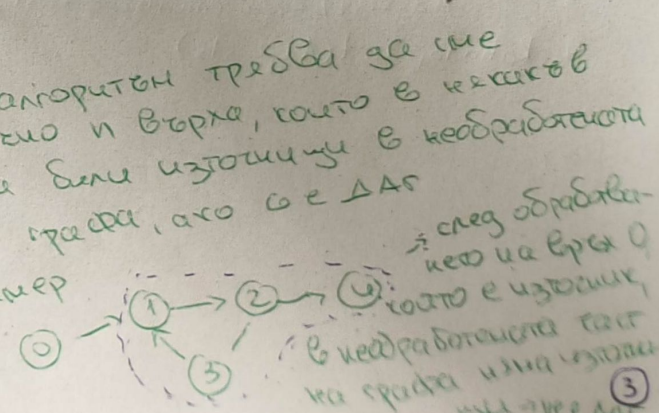 алгоритъм трябва да сме
n върха, които в някакъв
били източници в необработената
графа, ако се ДАГ
след обработва-
мер
нето на връх 0,
1 2 4
който е източник,
0
в необработената част
3
на графа има източн
3